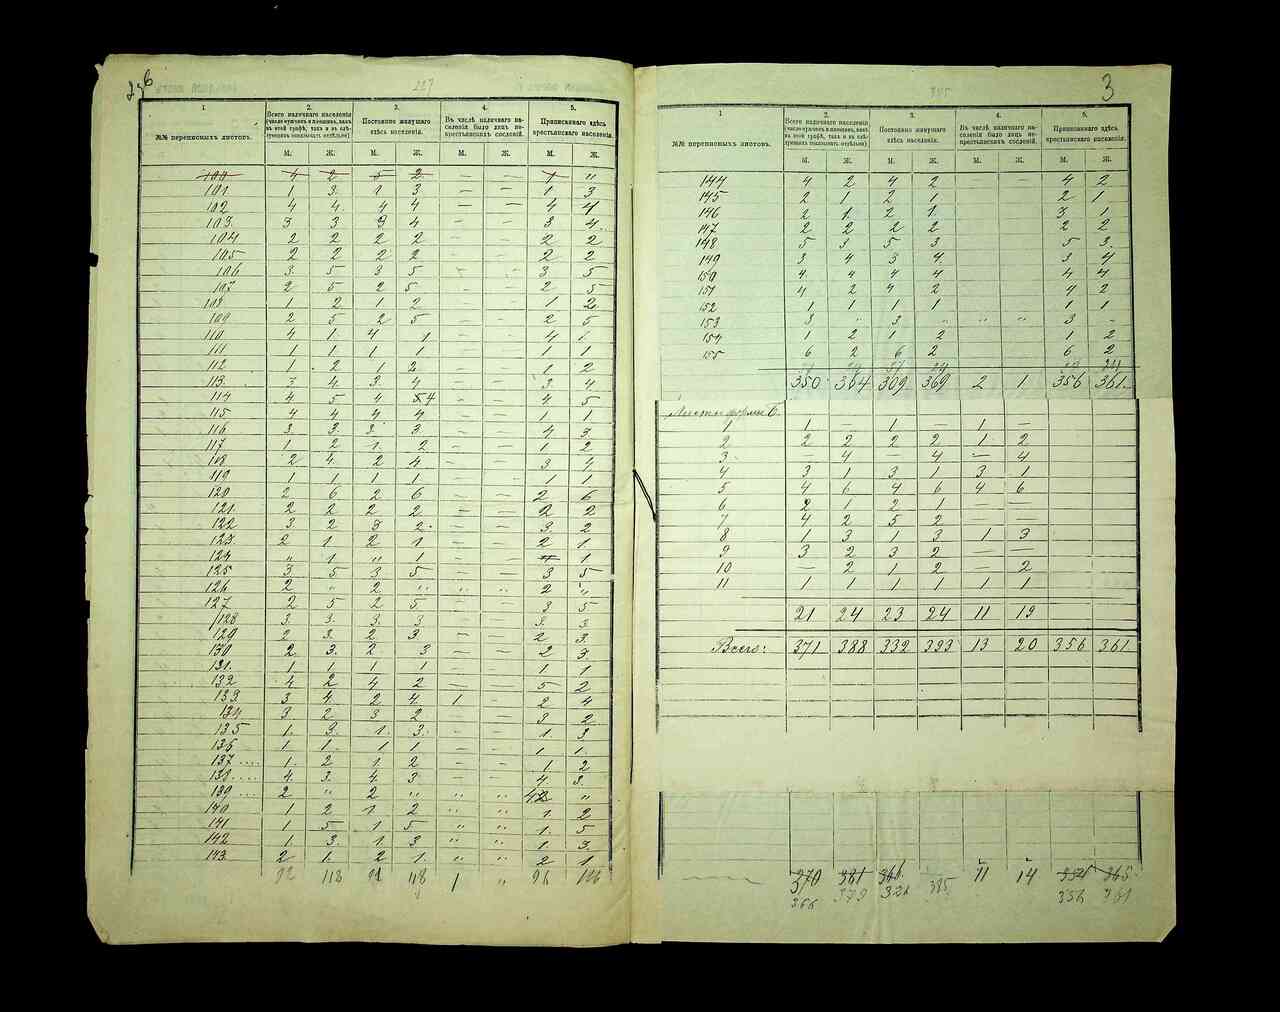 227
1. 2. 3. 4. 5.
№№ переписныхъ листовъ. Всего наличнаго населенія (число мужчинъ и женщинъ, какъ въ этой графѣ, такъ и въ слѣдующихъ показывать отдѣльно) Постоянно живущаго здѣсь населенія. Въ числѣ наличнаго населенія было лицъ некрестьянскихъ сословій. Приписаннаго здѣсь крестьянскаго населенія.
М. Ж. М. Ж. М. Ж. М. Ж.
100 4 2 5 2. — — 1 "
101 1 3. 1 3 — — 1 3
102 4 4. 4 4 — — 4 4
103. 3 3 3 4 — — 3 4.
104 2 2 2 2 — — 2 2
105 2 2 2 2 — — 2 2
106 3 5 3 5 - - 3 5
107 2 5 2 5 — — 2 5
108 1 2 1 2 — — 1 2
109 2 5 2 5 — — 2 5
110 4 1. 4 1 — — 4 1.
111 1 1 1 1 — — 1 1
112 1. 2 1 2 — — 1 2
113. 3 4 3. 4 — — 3. 4
114 4 5 4 54 — — 4. 5
115 4 4 4 4 — — 1 1
116 3. 3. 3. 3 — — 4 3.
117 1 2 1. 2 — — 1 2
118 2 4. 2 4 — 3 4
119 1 1 1 1 — 1 1
120 2 6 2 6 — — 2 6
121 2 2 2 2 — — 2 2
122 3 2 3 2. — — 3. 2
123 2 1 2 1 — — 2 1
124 " 1 " 1 — — 1
125 3. 5 3 5 — — 3 5
126 2 " 2 " " " 2 "
127 2 5 2 5 — — 3 5
128 3. 3. 3. 3 — — 3. 3
129 2 3. 2 3 — — 2 3.
130 2. 3. 2 3 — — 2 3
131. 1 1 1 1 — — 1 1
132 4 2 4 2 — — 5 2
133 3 4. 2 4. 1 — 2 4
134 3 2 3 2 — — 3 2
135 1. 3. 1. 3. — — 1. 3
136 1 1 1 1 — — 1 1.
137.... 1. 2 1. 2 — — 1. 2
138.... 4. 3. 4. 3 — — 4 3.
139... 2 " 2 " " " 42 "
140 1 2 1 2 " " 1. 2
141 1 5 1 5 " " 1. 5
142 1. 3. 1. 3 " " 1. 3.
143. 2 1. 2 1. " " 2 1
92 118 91 118 1 " 96 116
3
1 2. 3. 4. 5.
№№ переписныхъ листовъ. Всего наличнаго населенія (число мужчинъ и женщинъ, какъ въ этой графѣ, такъ и въ слѣдующихъ показывать отдѣльно) Постоянно живущаго здѣсь населенія. Въ числѣ наличнаго населенія было лицъ некрестьянскихъ сословій. Приписаннаго здѣсь крестьянскаго населенія.
М. Ж. М. Ж. М. Ж. М. Ж.
144 4 2 4 2 — — 4 2
145 2 1 2 1 2 1
146 2 1. 2 1. 3 1
147 2 2 2 2 2 2
148 5 3 5 3 5 3.
149 3 4 3 4 3 4
150 4. 4 4 4 4 4
151 4 2 4 2 4 2
152 1 1 1 1 1 1
153 3 " 3 " " " 3 -
154 1 2 1 2 1 2
155 6 2 6 2 6 2
350 364 309 369 2 1 356 361.
Листы формы Б.
1 1 — 1 — 1 —
2 2 2 2 2 1 2
3 — 4 — 4 — 4
4 3 1 3 1 3 1
5 4 6 4 6 4 6
6 2 1 2 1 — —
7 4 2 5 2 — —
8 1 3 1 3 1 3
9 3 2 3 2 — —
10 — 2 1 2 — 2
11 1 1 1 1 1 1
21 24 23 24 11 19
Всего: 371 388 332 393 13 20 356 361
370 381 366 385 11 14 365
366 379 326 356 361